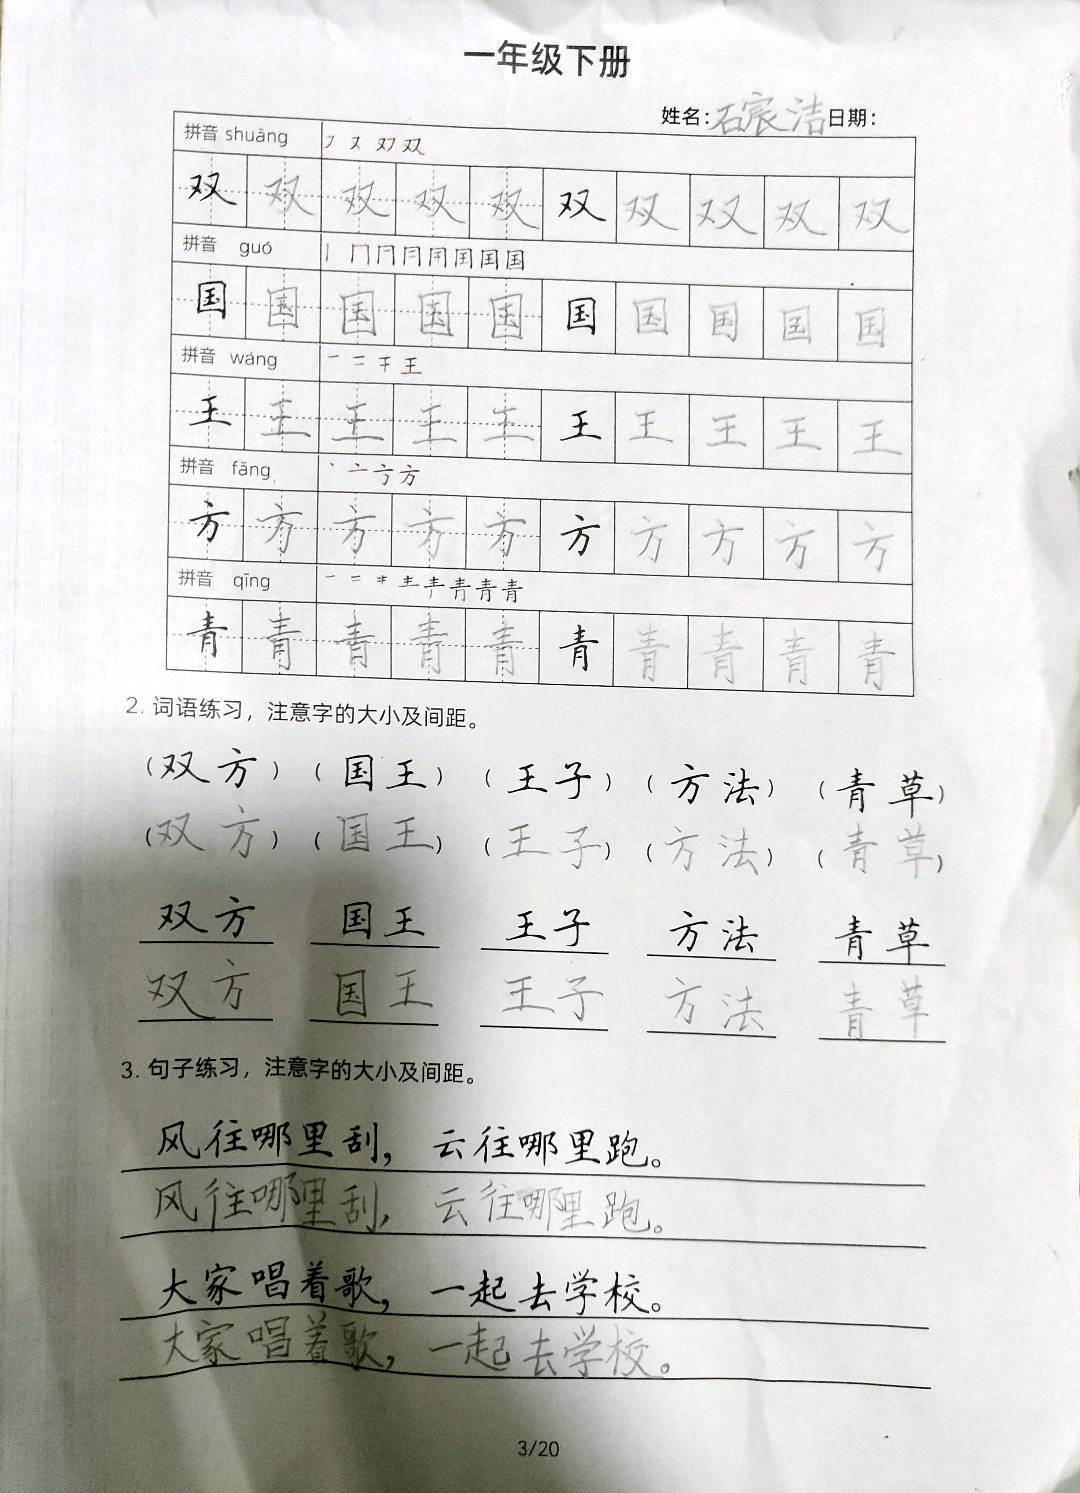 一年级下册
姓名：石宸洁日期：
拼音 shuāng フ ヌ 刄 双
双 双 双 双 双 双 双 双 双 双
拼音 guó 丨 冂 冂 冃 用 囯 国 国
国 国 国 国 国 国 国 国 国 国
拼音 wáng 一 二 干 王
王 王 王 王 王 王 王 王 王 王
拼音 fāng 丶 亠 亐 方
方 方 方 方 方 方 方 方 方 方
拼音 qīng 一 二 キ 龶 青 青 青 青
青 青 青 青 青 青 青 青 青 青
2. 词语练习，注意字的大小及间距。
（双方）（国王）（王子）（方法）（青草）
（双方）（国王）（王子）（方法）（青草）
双方 国王 王子 方法 青草
双方 国王 王子 方法 青草
3. 句子练习，注意字的大小及间距。
风往哪里刮，云往哪里跑。
风往哪里刮，云往哪里跑。
大家唱着歌，一起去学校。
大家唱着歌，一起去学校。
3/20